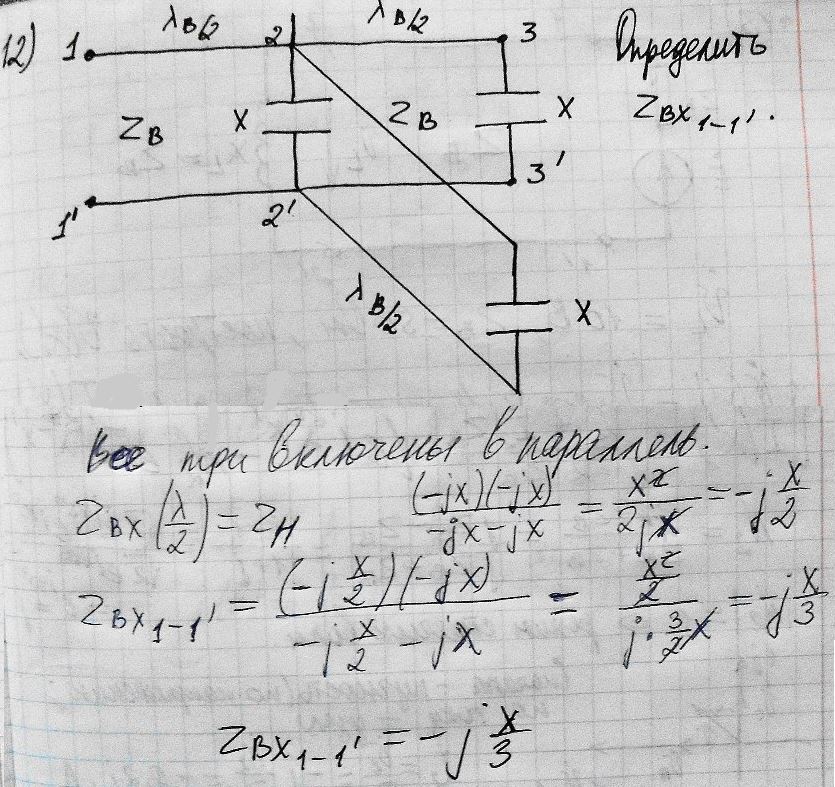 12) 1 λв/2 2 λв/2 3 Определить
Zв X Zв X Zвх 1-1'.
1' 2' 3'
λв/2 X
Все три включены в параллель.
Zвх(λ/2) = Zн (-jx)(-jx)/(-jx-jx) = x²/(2jx) = -j x/2
Zвх 1-1' = (-j x/2)(-jx)/(-j x/2 - jx) = (x²/2)/(j·3/2 x) = -j x/3
Zвх 1-1' = -j x/3